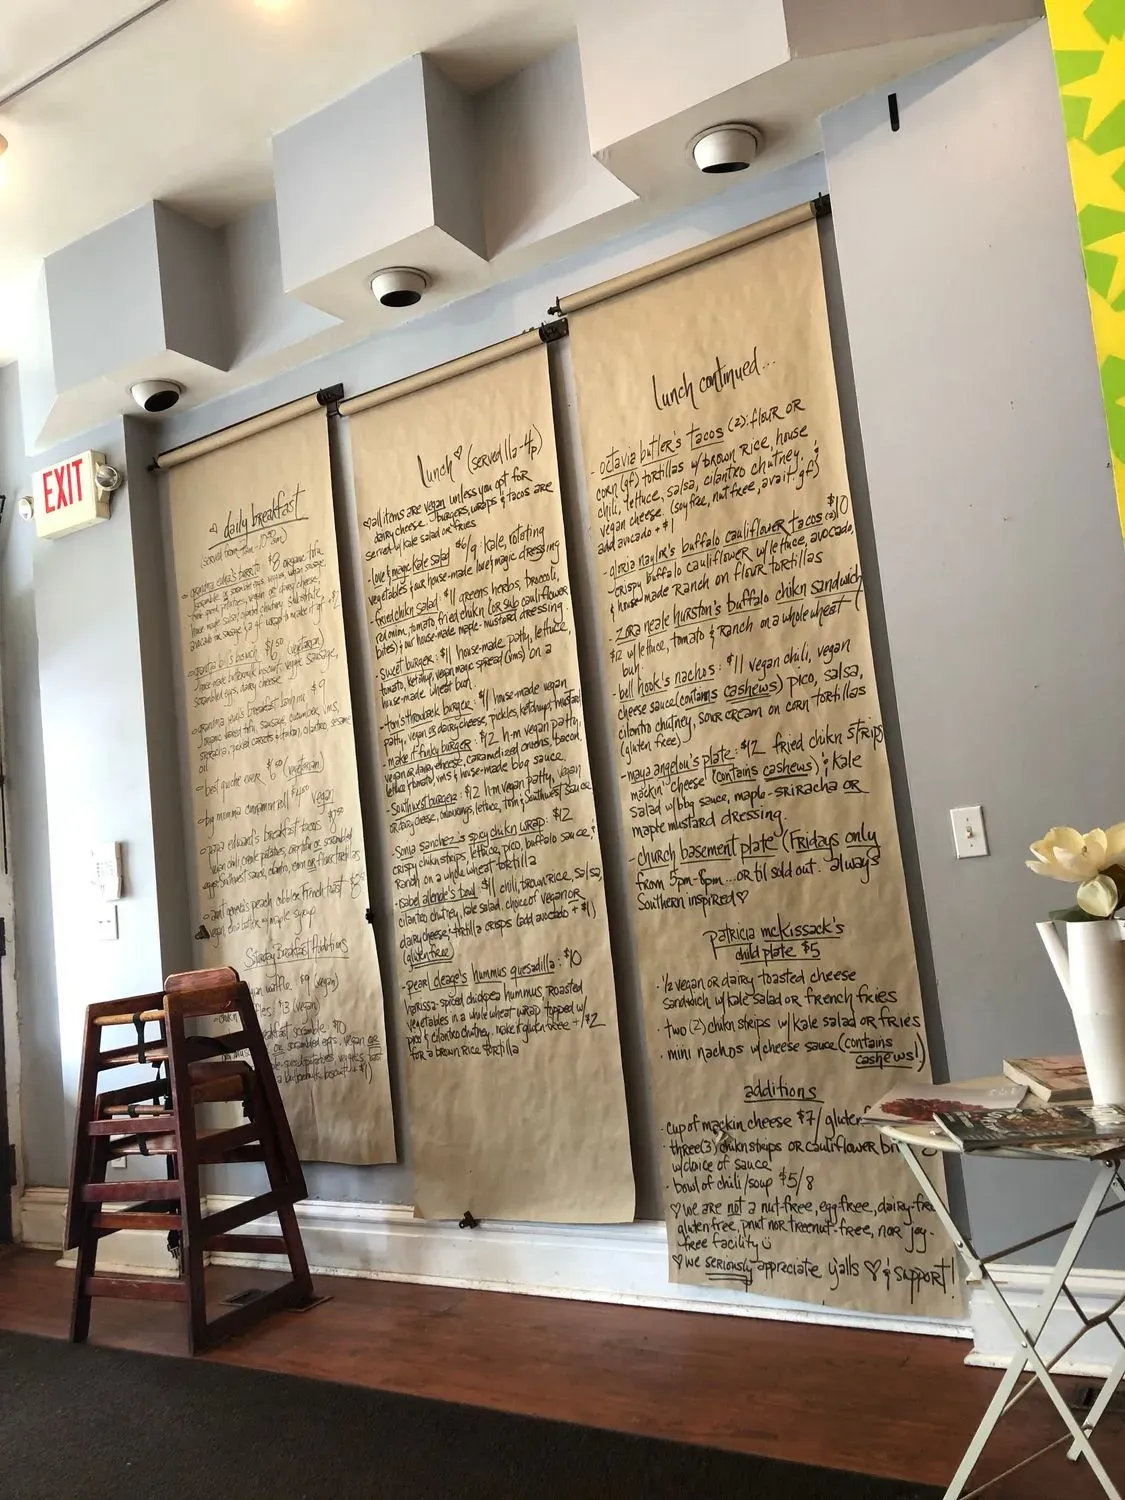 EXIT
daily breakfast
(served from 7am-10:30am)
$8 organic tofu
vegan sausage,
house potatoes, vegan or dairy cheese,
house made salsa, cilantro chutney
$6.50 (vegetarian)
house-made buttermilk biscuit, veggie sausage,
scrambled eggs, dairy cheese
breakfast $9
organic tofu, sausage, cucumber,
sriracha, pickled carrots & daikon, cilantro, sesame
oil
best quiche ever $6.50 (vegetarian)
momma cinnamon roll $4.50 vegan
breakfast tacos $7.50
vegan chili, potatoes, corn tofu or scrambled
eggs, southwest sauce, cilantro, corn or flour tortillas
peach cobbler french toast $8.50
vegan batter & maple syrup
Saturday Breakfast Additions
waffle $9 (vegan)
$13 (vegan)
scramble $10
or scrambled eggs, vegan or
lunch ♡ (served 11a-4p)
♡all items are vegan unless you opt for
dairy cheese. burgers, wraps & tacos are
served w/ kale salad or fries
-love & magic kale salad $6/9: kale, rotating
vegetables & our house-made love & magic dressing
-fried chikn salad: $11 greens herbs, broccoli,
red onion, tomato fried chikn (or sub cauliflower
bites) & our house-made maple-mustard dressing.
-sweet burger: $11 house-made patty, lettuce,
tomato, ketchup, vegan magic spread (vms) on a
house-made wheat bun.
-tom's throwback burger: $11 house-made vegan
patty, vegan or dairy cheese, pickles, ketchup & mustard
-make it funky burger: $12 h-m vegan patty,
vegan or dairy cheese, caramelized onions, bacon,
lettuce, tomato, vms & house-made bbq sauce.
-southwest burger: $12 h-m vegan patty, vegan
or dairy cheese, onion rings, lettuce, tom & Southwest sauce
-Sonia sanchez's spicy chikn wrap: $12
crispy chikn strips, lettuce, pico, buffalo sauce &
Ranch on a whole wheat tortilla
-Isabel allende's bowl: $11 chili, brown rice, salsa,
cilantro chutney, kale salad, choice of vegan or
dairy cheese & tortilla crisps (add avocado + $1)
(gluten free)
-pearl cleage's hummus quesadilla: $10
harissa-spiced chickpea hummus, roasted
vegetables in a whole wheat wrap topped w/
pico & cilantro chutney. make it gluten free +$2
for a brown rice tortilla
lunch continued...
- octavia butler's tacos (2): flour or
corn (gf) tortillas w/ brown rice, house
chili, lettuce, salsa, cilantro chutney &
vegan cheese. (soy free, nut free, avail. gf)
add avocado + $1 $10
- gloria naylor's buffalo cauliflower tacos (2) 10
crispy buffalo cauliflower w/ lettuce, avocado,
& house made Ranch on flour tortillas
- zora neale hurston's buffalo chikn sandwich
$12 w/ lettuce, tomato & ranch on a whole wheat
bun.
- bell hook's nachos: $11 vegan chili, vegan
cheese sauce (contains cashews) pico, salsa,
cilantro chutney, sour cream on corn tortillas
(gluten free)
-maya angelou's plate: $12 fried chikn strips
mackin' cheese (contains cashews) & kale
salad w/ bbq sauce, maple-sriracha or
maple mustard dressing.
-church basement plate (Fridays only
from 5pm-8pm...or til sold out. always
southern inspired♡
patricia mckissack's
child plate $5
· ½ vegan or dairy toasted cheese
sandwich w/ kale salad or french fries
· two (2) chikn strips w/ kale salad or fries
· mini nachos w/ cheese sauce (contains
cashews!)
additions
· cup of mackin cheese $7/ gluten
· three (3) chikn strips or cauliflower
w/ choice of sauce
- bowl of chili/soup $5/8
♡we are not a nut-free, egg-free, dairy-free
gluten free, pnut nor treenut-free, nor joy-
free facility
♡we seriously appreciate y'alls ♡ & support!